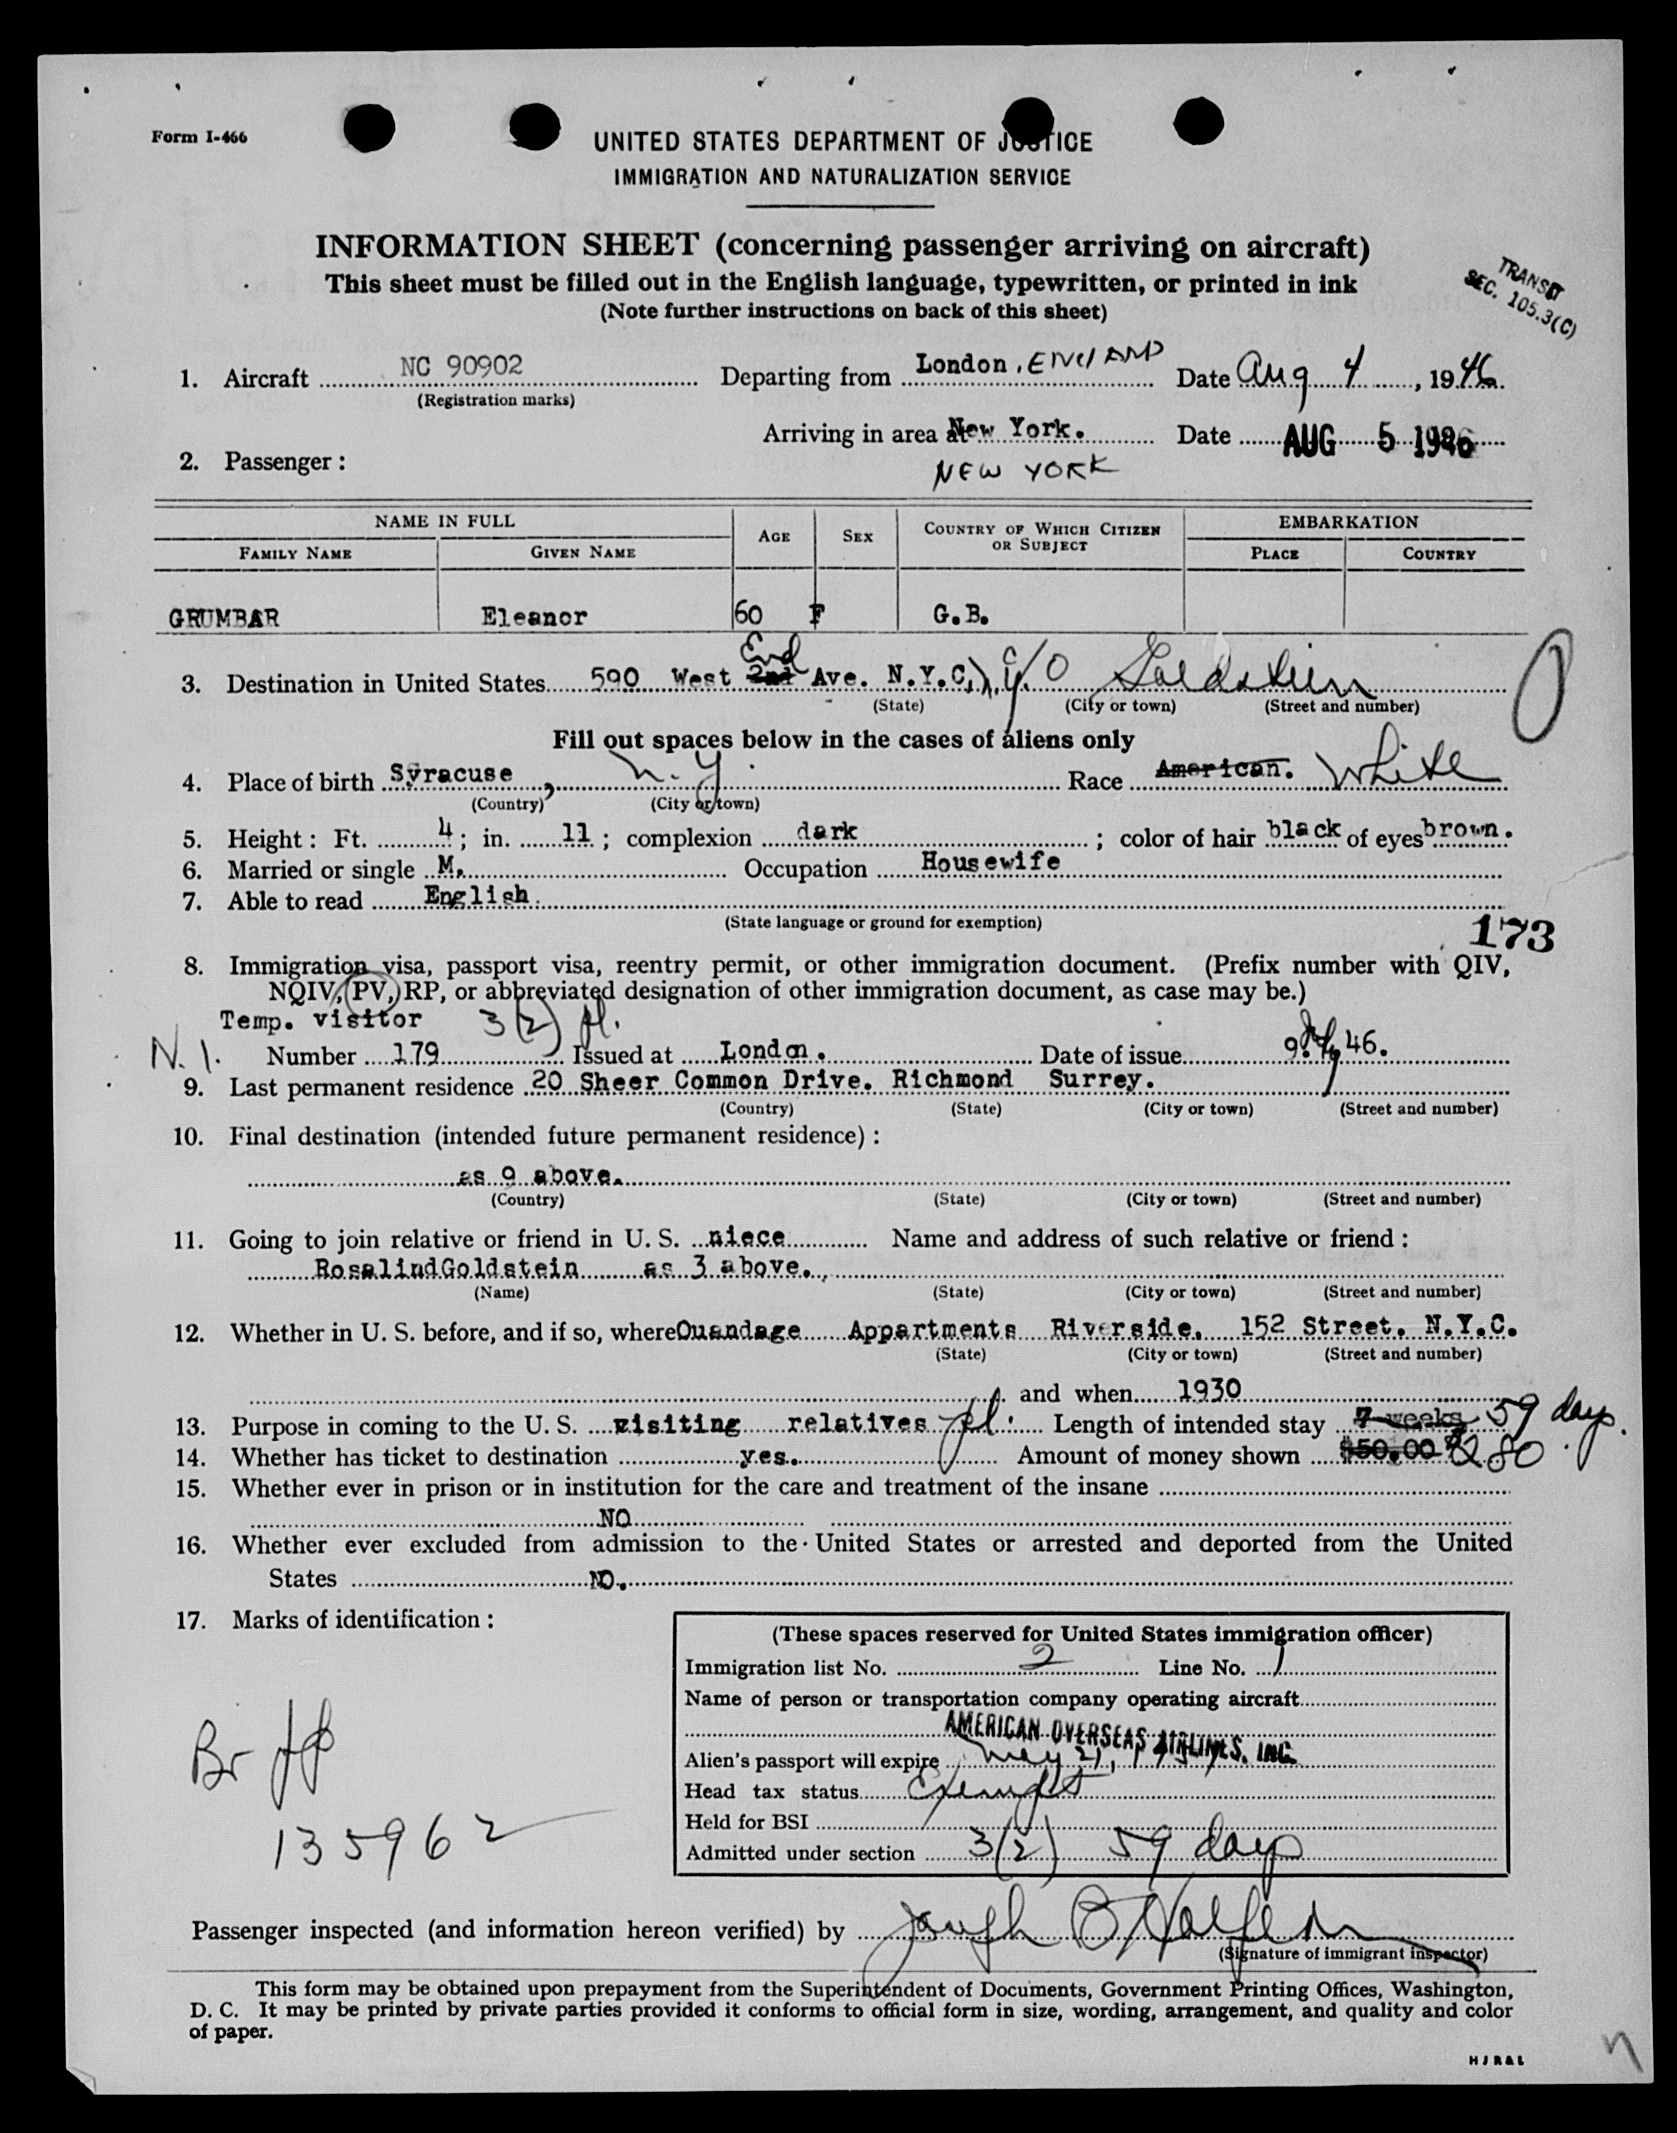 Form I-466
UNITED STATES DEPARTMENT OF JUSTICE
IMMIGRATION AND NATURALIZATION SERVICE
INFORMATION SHEET (concerning passenger arriving on aircraft)
This sheet must be filled out in the English language, typewritten, or printed in ink
(Note further instructions on back of this sheet)
TRANSIT
SEC. 105.3(C)
1. Aircraft NC 90902 Departing from London, ENGLAND Date Aug 4, 1946
(Registration marks)
Arriving in area at New York. Date AUG 5 1946
2. Passenger: NEW YORK
NAME IN FULL AGE SEX COUNTRY OF WHICH CITIZEN OR SUBJECT EMBARKATION
FAMILY NAME GIVEN NAME PLACE COUNTRY
GRUMBAR Eleanor 60 F G.B.
End
3. Destination in United States 590 West 2nd Ave. N.Y.C. N.Y. c/o Goldstein
(State) (City or town) (Street and number)
Fill out spaces below in the cases of aliens only
4. Place of birth Syracuse, N.Y. Race American. White
(Country) (City or town)
5. Height: Ft. 4; in. 11; complexion dark; color of hair black of eyes brown.
6. Married or single M. Occupation Housewife
7. Able to read English.
(State language or ground for exemption)
173
8. Immigration visa, passport visa, reentry permit, or other immigration document. (Prefix number with QIV,
NQIV, PV, RP, or abbreviated designation of other immigration document, as case may be.)
Temp. visitor 3(2)
N.I. Number 179 Issued at London. Date of issue 9. July 46.
9. Last permanent residence 20 Sheer Common Drive. Richmond Surrey.
(Country) (State) (City or town) (Street and number)
10. Final destination (intended future permanent residence):
as 9 above.
(Country) (State) (City or town) (Street and number)
11. Going to join relative or friend in U. S. niece Name and address of such relative or friend:
RosalindGoldstein as 3 above.
(Name) (State) (City or town) (Street and number)
12. Whether in U. S. before, and if so, where Ouandage Appartments Riverside. 152 Street. N.Y.C.
(State) (City or town) (Street and number)
and when 1930
13. Purpose in coming to the U. S. visiting relatives Length of intended stay 7 weeks 59 days.
14. Whether has ticket to destination yes. Amount of money shown $50.00 $280
15. Whether ever in prison or in institution for the care and treatment of the insane
NO
16. Whether ever excluded from admission to the United States or arrested and deported from the United
States NO.
17. Marks of identification:
(These spaces reserved for United States immigration officer)
Immigration list No. 2 Line No. 1
Name of person or transportation company operating aircraft
AMERICAN OVERSEAS AIRLINES, INC.
Alien's passport will expire May 21,
Head tax status Exempt
Held for BSI
Admitted under section 3(2) 59 days
Br
135962
Passenger inspected (and information hereon verified) by Joseph B Halfern
(Signature of immigrant inspector)
This form may be obtained upon prepayment from the Superintendent of Documents, Government Printing Offices, Washington,
D. C. It may be printed by private parties provided it conforms to official form in size, wording, arrangement, and quality and color
of paper.
HJR&L